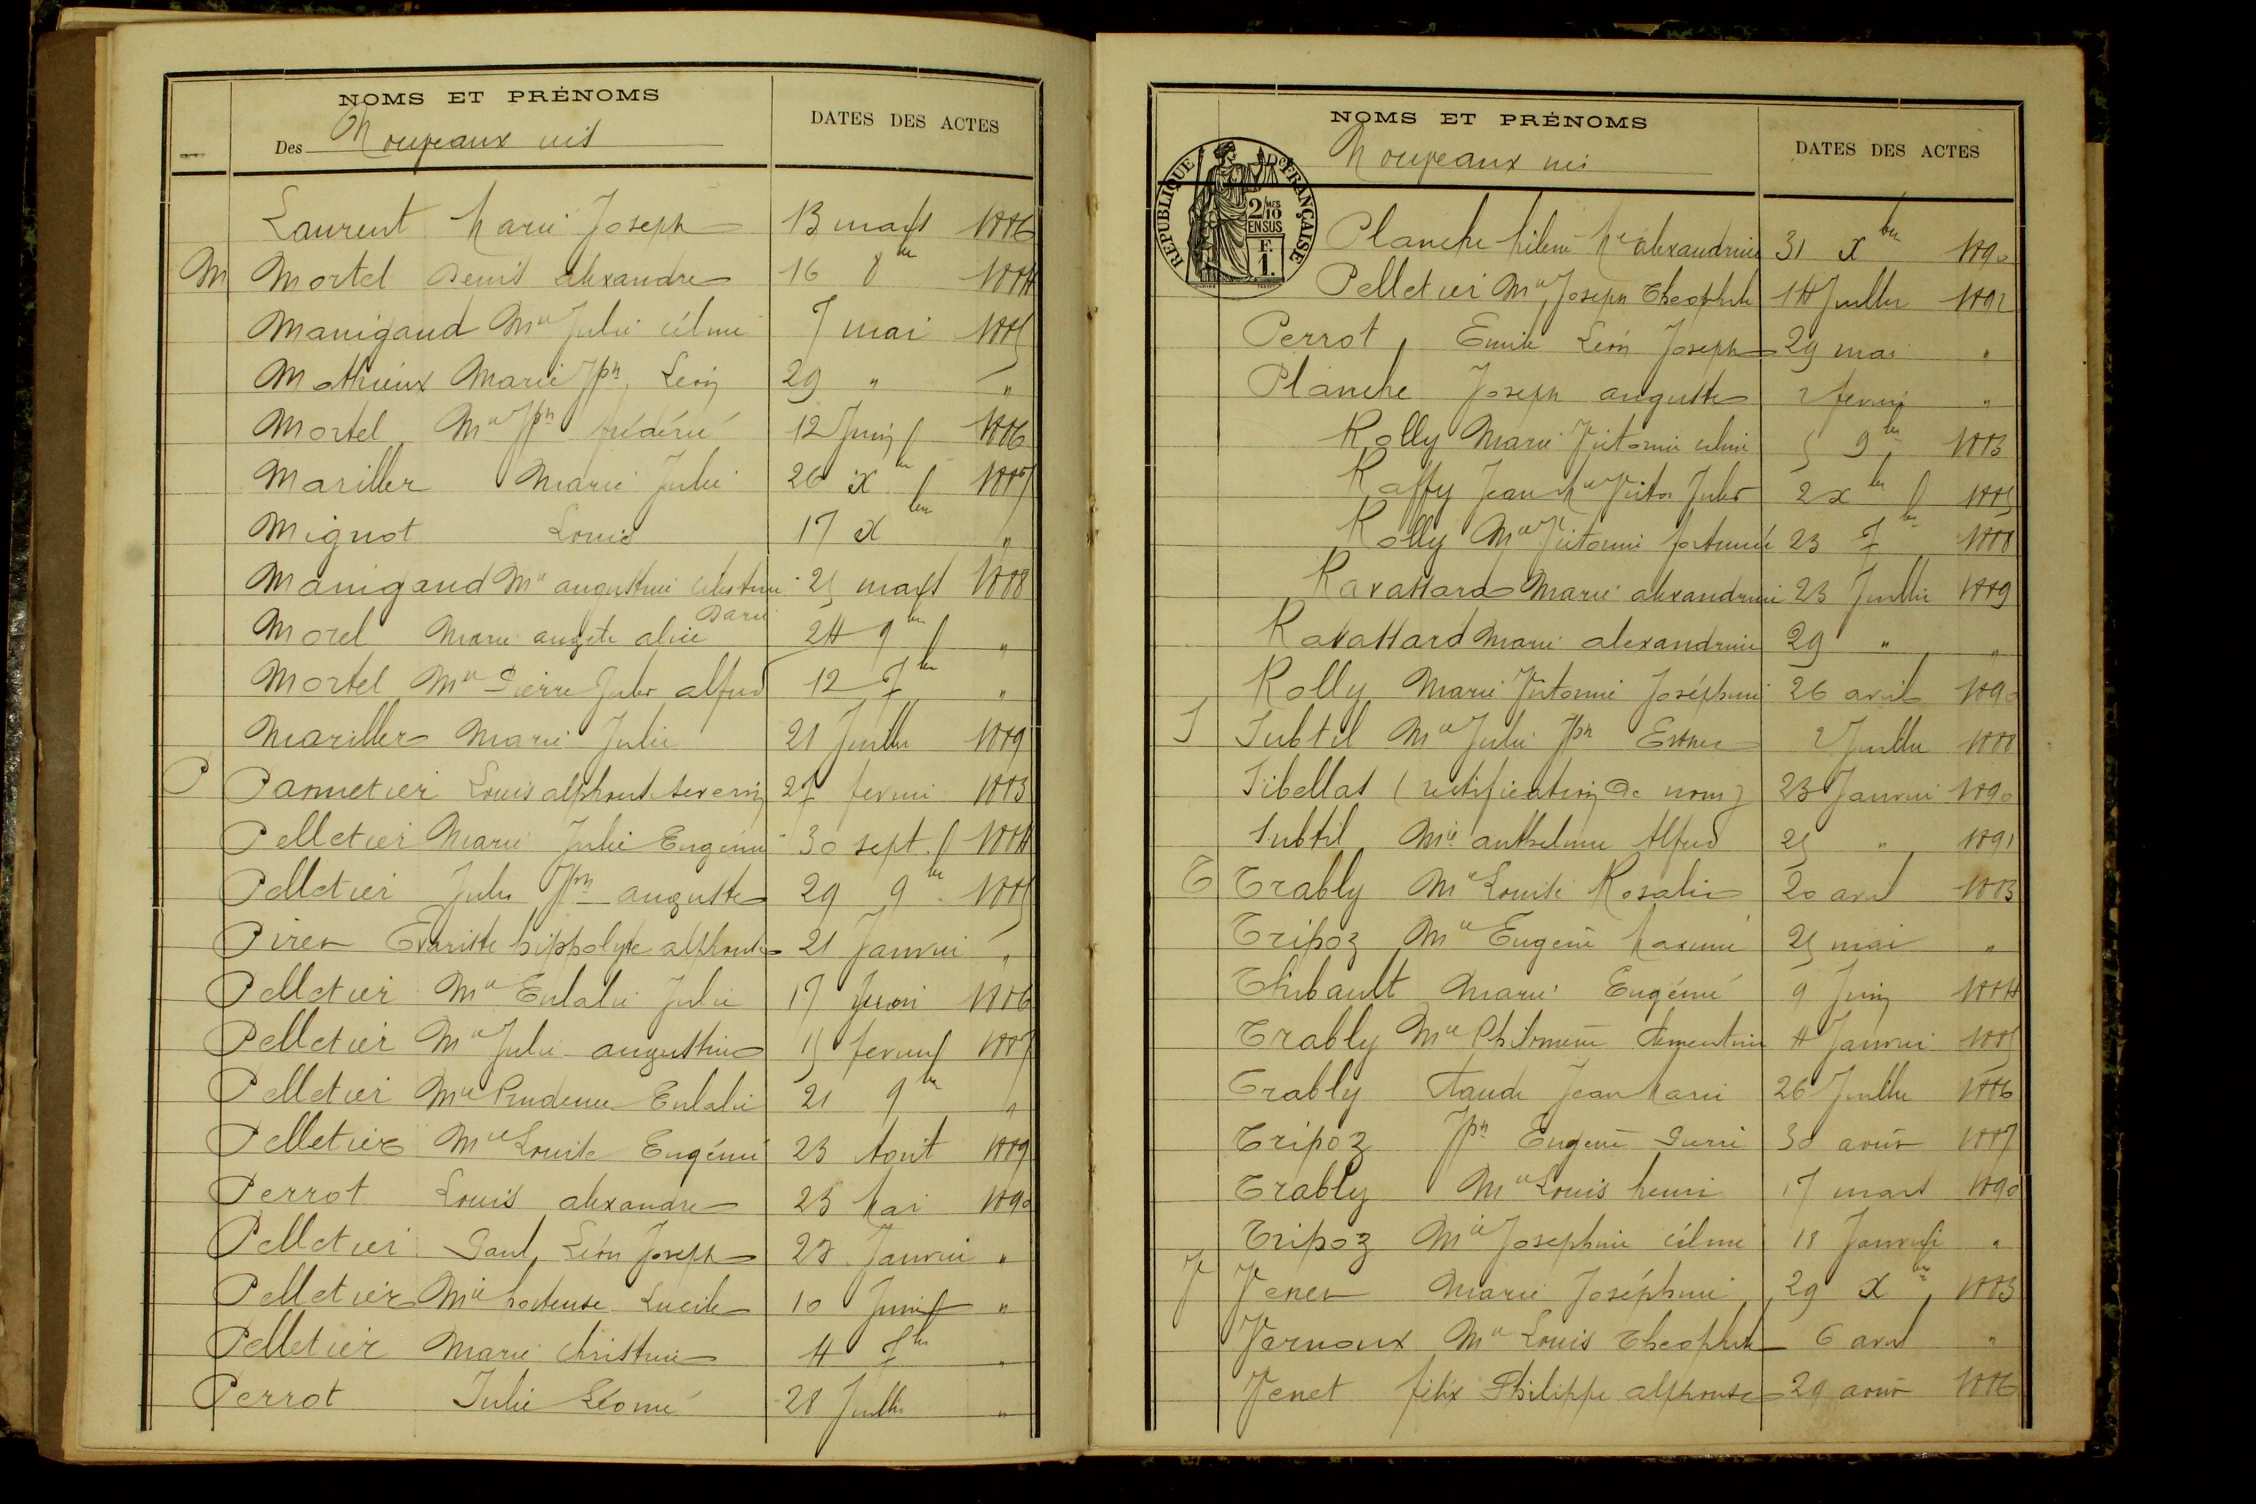 NOMS ET PRÉNOMS
Des Nouveaux nés
DATES DES ACTES
Laurent Marie Joseph 13 mars 1886
M Mortel Denis alexandre 16 8bre 1884
Manigaud Mie Julie céline 7 mai 1885
Mathieux Marie Jph Léon 29 " "
Mortel Mie Jph frédéric 12 Juin 1886
Mariller Marie Julie 26 1887
Mignot Louis 17 Xbre "
Manigaud Mie augustine célestine 25 mars 1888
Darie
Morel Marie alice 24 9bre "
Mortel Mie Pierre Jules alfred 12 7bre "
Mariller Marie Julie 21 Juillet 1889
P Pannetier Louis alphonse severin 27 fevrier 1883
Pelletier Marie Julie Eugénie 30 sept. 1884
Pelletier Jules Jph auguste 29 9bre 1885
Evariste hippolyte alphonse 21 Janvier "
Pelletier Mie Eulalie Julie 17 1886
Pelletier Mie Julie augustine 15 fevrier 1887
Pelletier Mie Prudence Eulalie 21 9bre "
Pelletier Mie Louise Eugénie 23 Aout 1889
Perrot Louis alexandre 23 Mai 1890
Pelletier Paul Léon Joseph 23 Janvier "
Pelletier Mie hortense Lucile 10 Juin "
Pelletier Marie christine 4 7bre "
Perrot Julie Léonie 28 Juillet "
NOMS ET PRÉNOMS
Nouveaux nés
DATES DES ACTES
RÉPUBLIQUE FRANÇAISE
2/10 MES
EN SUS
F.
1.
Planche hélène Mie alexandrine 31 Xbre 1890
Pelletier Mie Joseph Theophile 14 Juillet 1892
Perrot Emile Léon Joseph 29 mai "
Planche Joseph auguste 2 fevrier "
Rolly Marie Victorine céline 5 9bre 1883
Raffy Jean Mie Victor Jules 2 xbre 1885
Rolly Mie Victorine fortunée 23 7bre 1888
Ravassard Marie alexandrine 23 Juillet 1889
Ravassard Marie alexandrine 29 " "
Rolly Marie Victorine Joséphine 26 avril 1890
S Subtil Mie Julie Jph Esther 2 Juillet 1888
Sibellas (rectification de nom) 23 Janvier 1890
Subtil Mie anthelme Alfred 25 " 1891
T Trably Mie Louise Rosalie 20 avril 1883
Tripoz Mie Eugène Maxime 25 mai "
Thibault Marie Eugénie 9 Juin 1884
Trably Mie Philomène clementine 4 Janvier 1885
Trably claude Jean Marie 26 Juillet 1886
Tripoz Jph Eugene Pierre 30 août 1887
Trably Mie Louis henri 17 mars 1890
Tripoz Mie Josephine céline 18 Janvier "
V Venet Marie Joséphine 29 Xbre 1883
Vernoux Mie Louis Theophile 6 avril "
Venet félix Philippe alphonse 29 août 1886